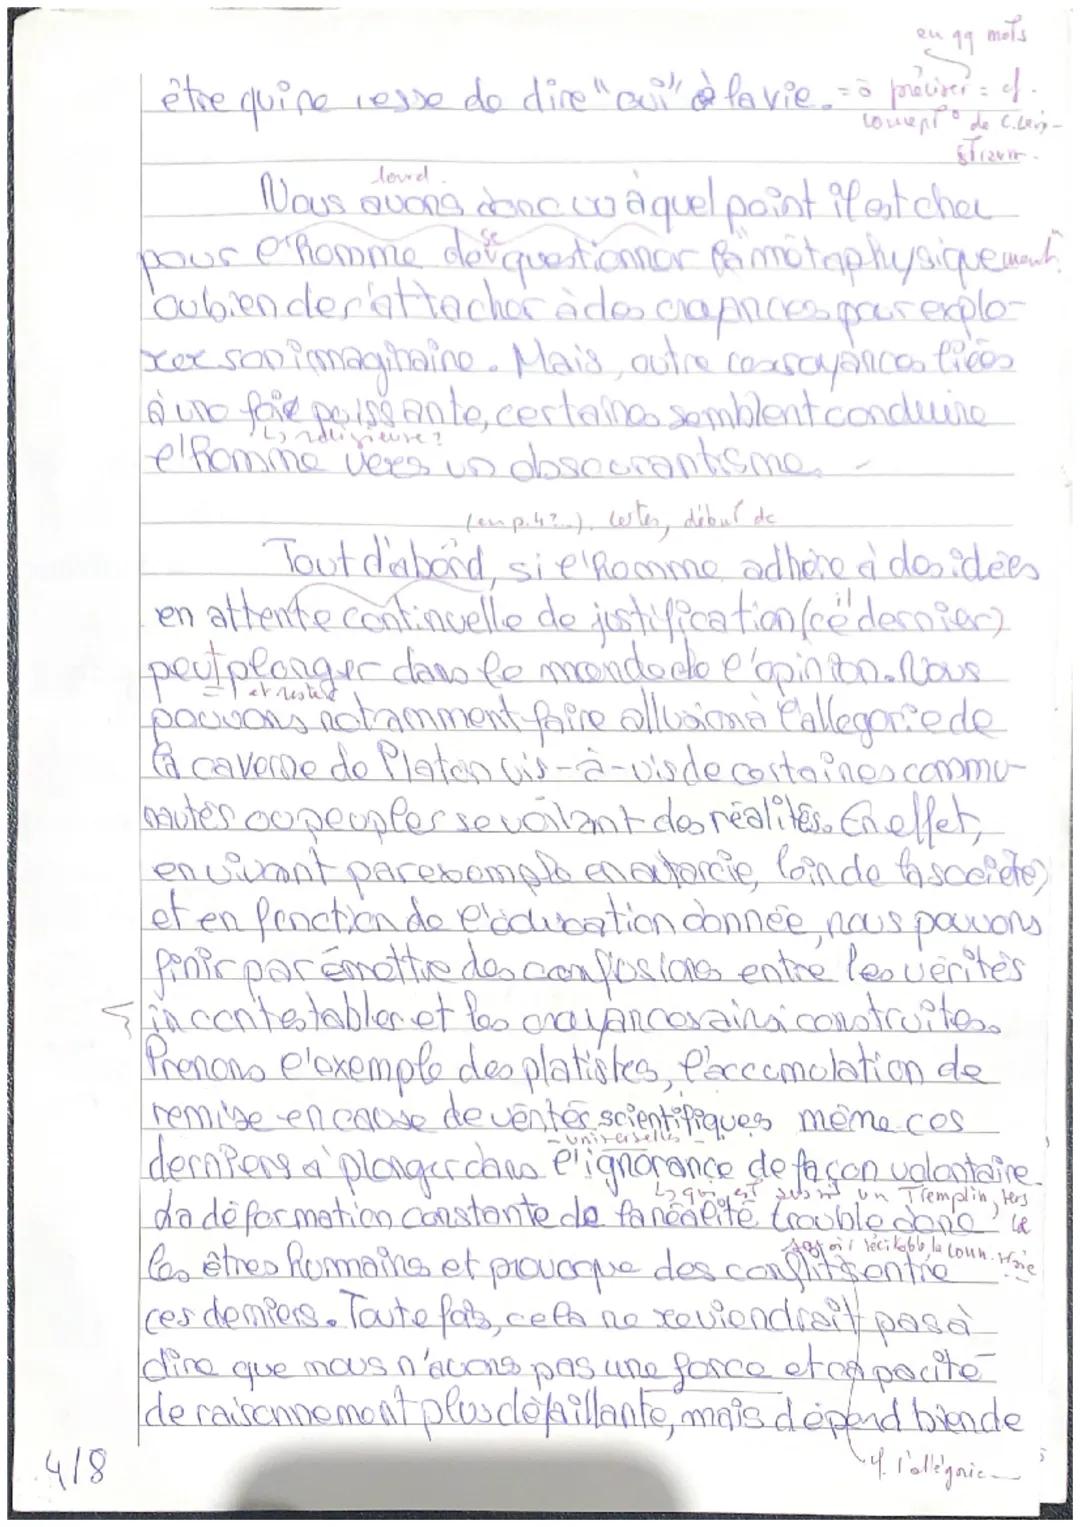 en qq mots
être qui ne cesse de dire "oui" à la vie. = à préciser = cf.
concept° de C. Lévi-
Strauss.
lourd.
Nous avons donc vu à quel point il est cher
se
pour l'homme de questionner la métaphysiquement
ou bien de s'attacher à des croyances pour explo-
rer son imaginaire. Mais, outre ces croyances liées
à une foie puissante, certaines semblent conduire
↳ religieuse ?
l'homme vers un obscurantisme.
(en p.4 ?...). Certes, début de
Tout d'abord, si l'homme adhère à des idées
en attente continuelle de justification (ce dernier)
peut plonger dans le monde de l'opinion. Nous
et rester
pouvons notamment faire allusion à l'allegorie de
la caverne de Platon vis-à-vis de certaines commu-
nautés ou peuples se voilant des réalités. En effet,
en vivant par exemple en autarcie, loin de la société,
et en fonction de l'éducation donnée, nous pouvons
finir par émettre des confusions entre les vérités
incontestables et les croyances ainsi construites.
Prenons l'exemple des platistes, l'accumulation de
remise en cause de vérités scientifiques mène ces
- universelles -
derniers à plonger dans l'ignorance de façon volontaire.
↳ qui est un Tremplin vers
La déformation constante de la réalité trouble donc le
savoir véritable, la conn. vraie
les êtres humains et provoque des conflits entre
ces derniers. Toute fois, cela ne reviendrait pas à
dire que nous n'avons pas une force et capacité
de raisonnement plus défaillante, mais dépend bien de
4/8
cf. l'allégorie